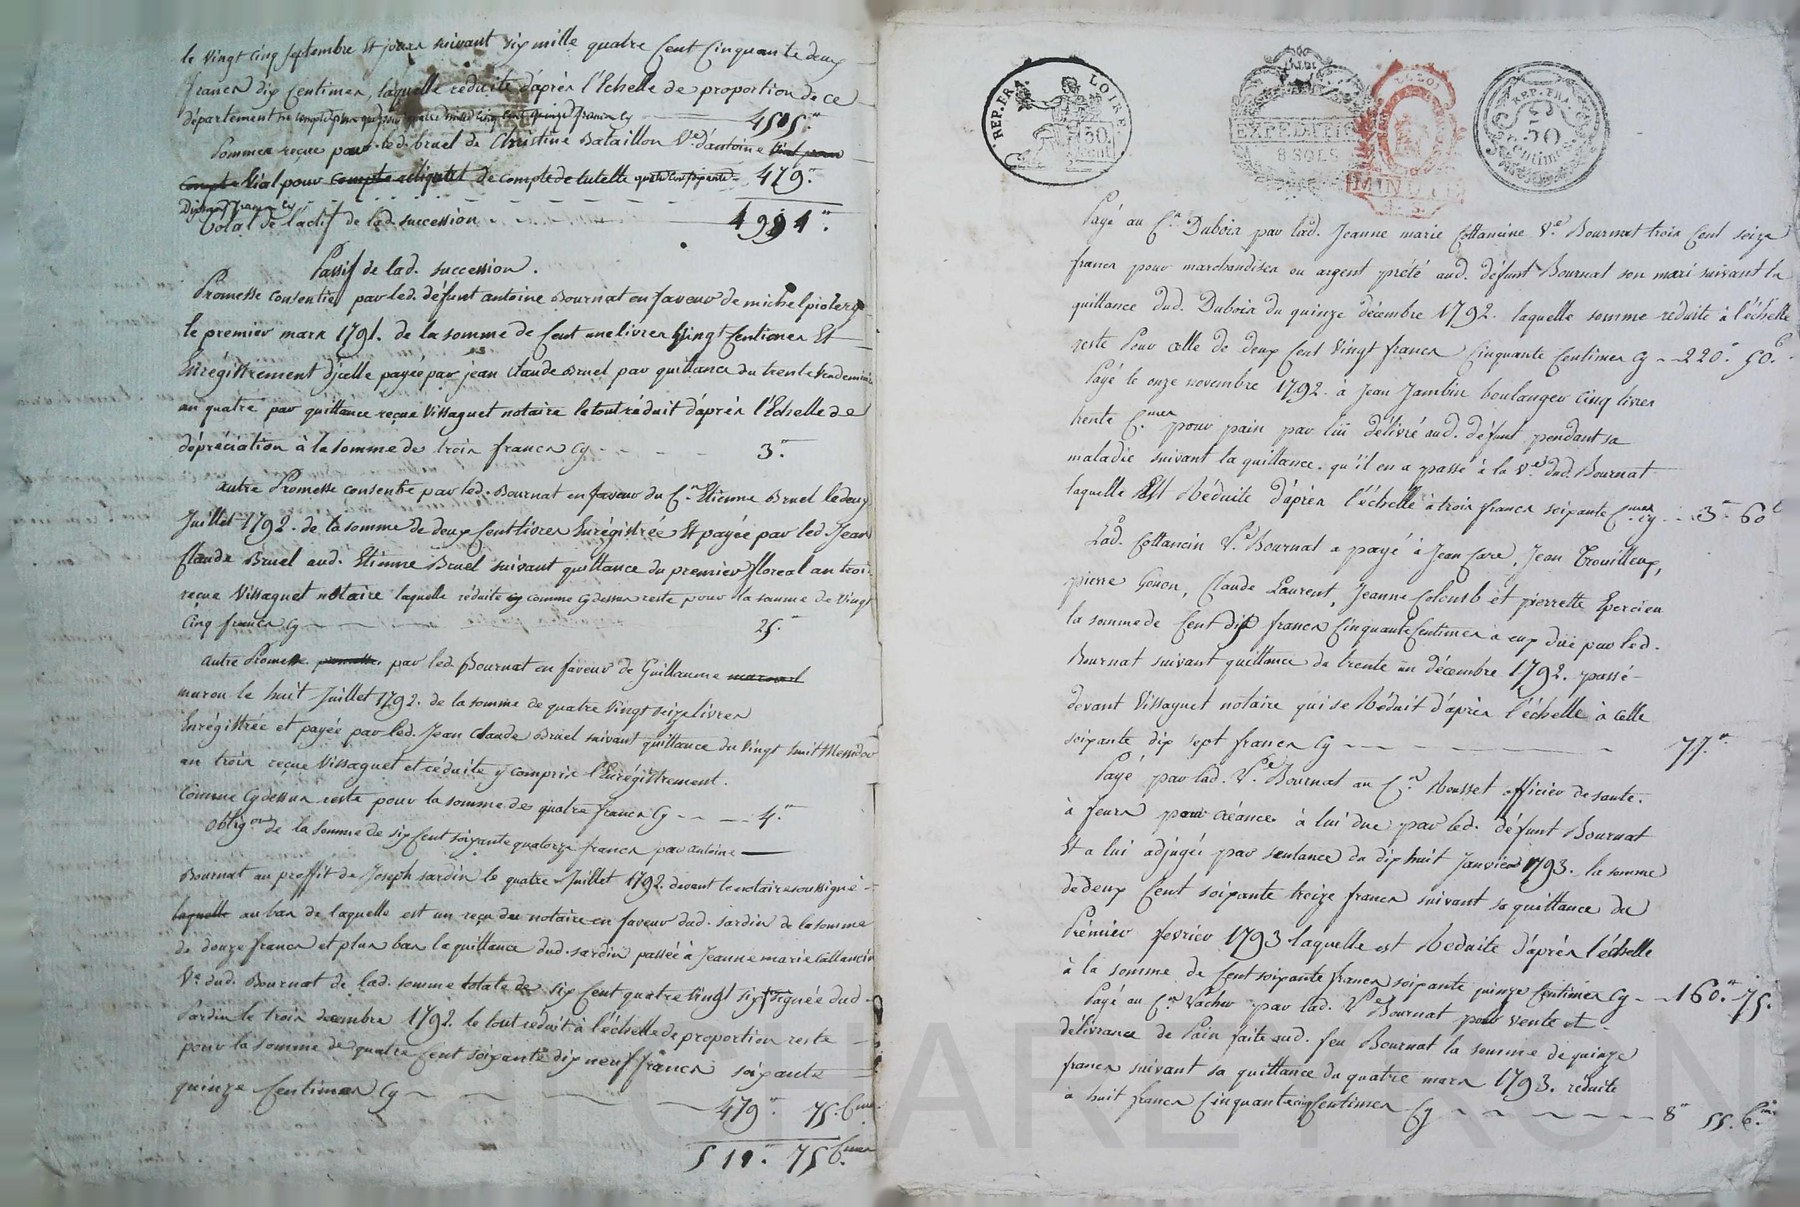 le vingt cinq septembre et jours suivant six mille quatre Cent Cinquante deux
francs dix Centimes, laquelle réduite d'après l'Echelle de proportion de ce
département ne compte plus que pour quatre mille cinq cent quinze francs Cy 4515.
Sommes reçue par led. bruel de Christine Bataillon Ve d'antoine Vial pour
Compte Vial pour compte de compte de tutelle quatre Cent Septante 479.
Dixneuf francs Cy
Total de l'actif de lad. succession 4994.
Passif de lad. succession.
Promesse consentie par led. défunt antoine Bournat en faveur de michel pioterg
le premier mars 1791. de la somme de Cent une livres vingt Centimes Et
Enrégistrement d'jcelle payée par jean Claude Bruel par quittance du trente Vendemiaire
an quatre par quittance reçue Vissaguet notaire le tout réduit d'après l'Echelle de
dépréciation à la somme de trois francs Cy 3.
autre Promesse consentie par led. Bournat en faveur du Cn. Etienne Bruel le deux
Juillet 1792. de la somme de deux Cent livres Enrégistrée Et payée par led. Jean
Claude Bruel aud. Etienne Bruel suivant quittance du premier floreal an trois
reçue Vissaguet notaire laquelle réduite cy comme cydessus reste pour la somme de Vingt
Cinq francs Cy 25.
autre Promesse promesse par led. Bournat en faveur de Guillaume
maron le huit Juillet 1792. de la somme de quatre vingt seize livres
Enrégistrée et payée par led. Jean Claude Bruel suivant quittance du vingt huit Messidor
an trois reçue Vissaguet et réduite y compris l'Enrégistrement.
Comme Cydessus reste pour la somme de quatre francs Cy 4.
Obligon de la somme de six Cent soixante quatorze francs par antoine
Bournat au proffit de Joseph sardin le quatre Juillet 1792. devant le notaire soussigné
laquelle au bas de laquelle est un reçu du notaire en faveur dud. sardin de la somme
de douze francs et plus bas la quittance dud. sardin passée à Jeanne marie Collancin
Ve dud. Bournat de lad. somme totale de six Cent quatre vingt six signée dud.
Sardin le trois decembre 1792. le tout réduit à l'échelle de proportion reste
pour la somme de quatre Cent soixante dix neuf francs soixante
quinze Centimes Cy 479. 75. Cmes
511. 75 Cmes
REP. FRA. LOIRE 50 Cent.
EXPEDITION 8 SOLS
LA LOI MINUTE
REP. FRA. 50 Centimes
Payé au Cn Dubois par lad. Jeanne marie Collancine Ve Bournat trois Cent seize
francs pour marchandises ou argent prété aud. défunt Bournat son mari suivant la
quittance dud. Dubois du quinze décembre 1792. laquelle somme réduite à l'échelle
reste Pour celle de deux Cent vingt francs Cinquante Centimes Cy 220. 50.c
Payé le onze novembre 1792. à Jean Jambin boulanger Cinq livres
trente Cmes pour pain par lui délivré aud. défunt pendant sa
maladie suivant la quittance. qu'il en a passé à la Ve dud. Bournat
laquelle Est Réduite d'après l'échelle à trois francs soixante Cmes Cy 3. 60c
Lad. Collancin Ve Bournat a payé à Jean Care, Jean Trouilleux,
pierre Gonon, Claude Laurent, Jeanne Colomb et pierrette Epercieu
la somme de Cent dix francs Cinquante Centimes à eux düe par led.
Bournat suivant quittance du trente un décembre 1792. passé
devant Vissaguet notaire qui se Réduit d'après l'échelle à celle
soixante dix sept francs Cy 77.
Payé par lad. Ve Bournat au Cn Rousset officier de santé.
à feurs pour créance à lui due par led. défunt Bournat
Et a lui adjugée par sentance du dix huit Janvier 1793. la somme
de deux Cent soixante treize francs suivant sa quittance du
Prémier fevrier 1793 laquelle est Reduite d'après l'échelle
à la somme de Cent soixante francs soixante quinze Centimes Cy 160. 75.
Payé au Cn Vacher par lad. Ve Bournat pour vente et
délivrance de Pain faite aud. feu Bournat la somme de quinze
francs suivant sa quittance du quatre mars 1793. réduite
à huit francs Cinquante cinq Centimes Cy 8 55. Cmes
CHAREYRON